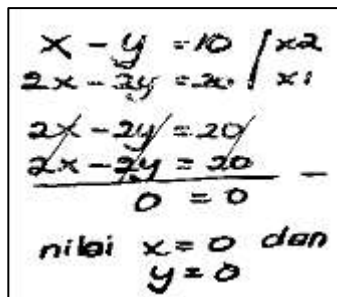 x - y = 10 | x2
2x - 2y = 20 | x1
2x - 2y = 20
2x - 2y = 20 -
0 = 0
nilai x = 0 dan
y = 0